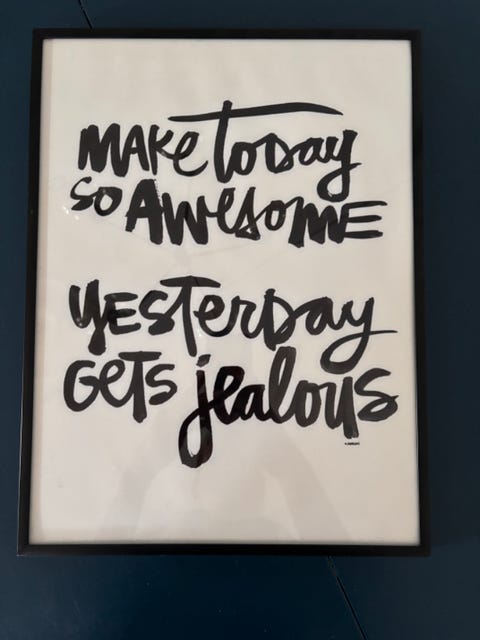 MAKE TODAY
SO AWESOME
YESTERDAY
GETS jealous